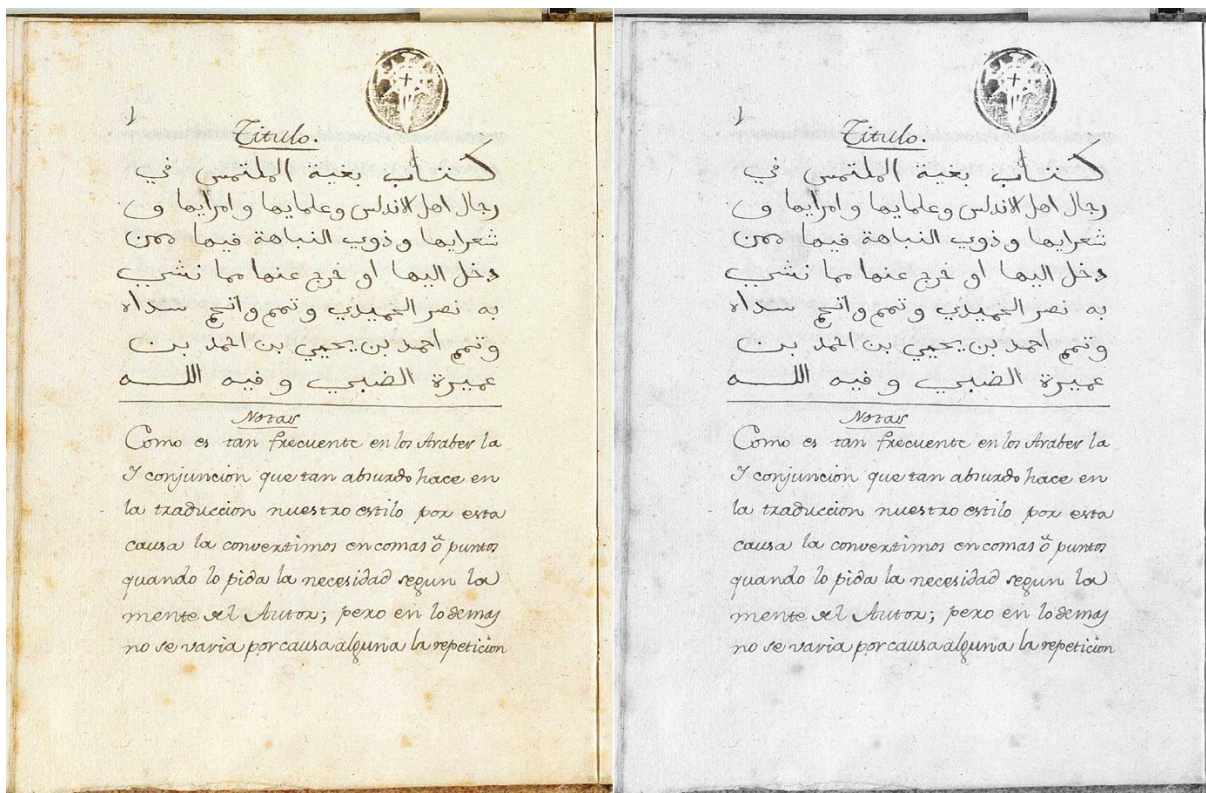 1
Titulo.
كتاب بغية الملتمس في
رجال اهل الاندلس وعلمايها وامرايها و
شعرايها وذوي النباهة فيها ممن
دخل اليها او خرج عنها مما نشي
به نصر الحميدي وتمم وانج سداه
وتمم احمد بن يحيي بن احمد بن
عميرة الضبي وفيه الله
Notas
Como es tan frecuente en los Arabes la
Y conjuncion que tan absurdo hace en
la traduccion nuestro estilo por esta
causa la convertimos en comas ö puntos
quando lo pida la necesidad segun la
mente del Autor; pero en lo demas
no se varia por causa alguna la repeticion
1
Titulo.
كتاب بغية الملتمس في
رجال اهل الاندلس وعلمايها وامرايها و
شعرايها وذوي النباهة فيها ممن
دخل اليها او خرج عنها مما نشي
به نصر الحميدي وتمم وانج سداه
وتمم احمد بن يحيي بن احمد بن
عميرة الضبي وفيه الله
Notas
Como es tan frecuente en los Arabes la
Y conjuncion que tan absurdo hace en
la traduccion nuestro estilo por esta
causa la convertimos en comas ö puntos
quando lo pida la necesidad segun la
mente del Autor; pero en lo demas
no se varia por causa alguna la repeticion